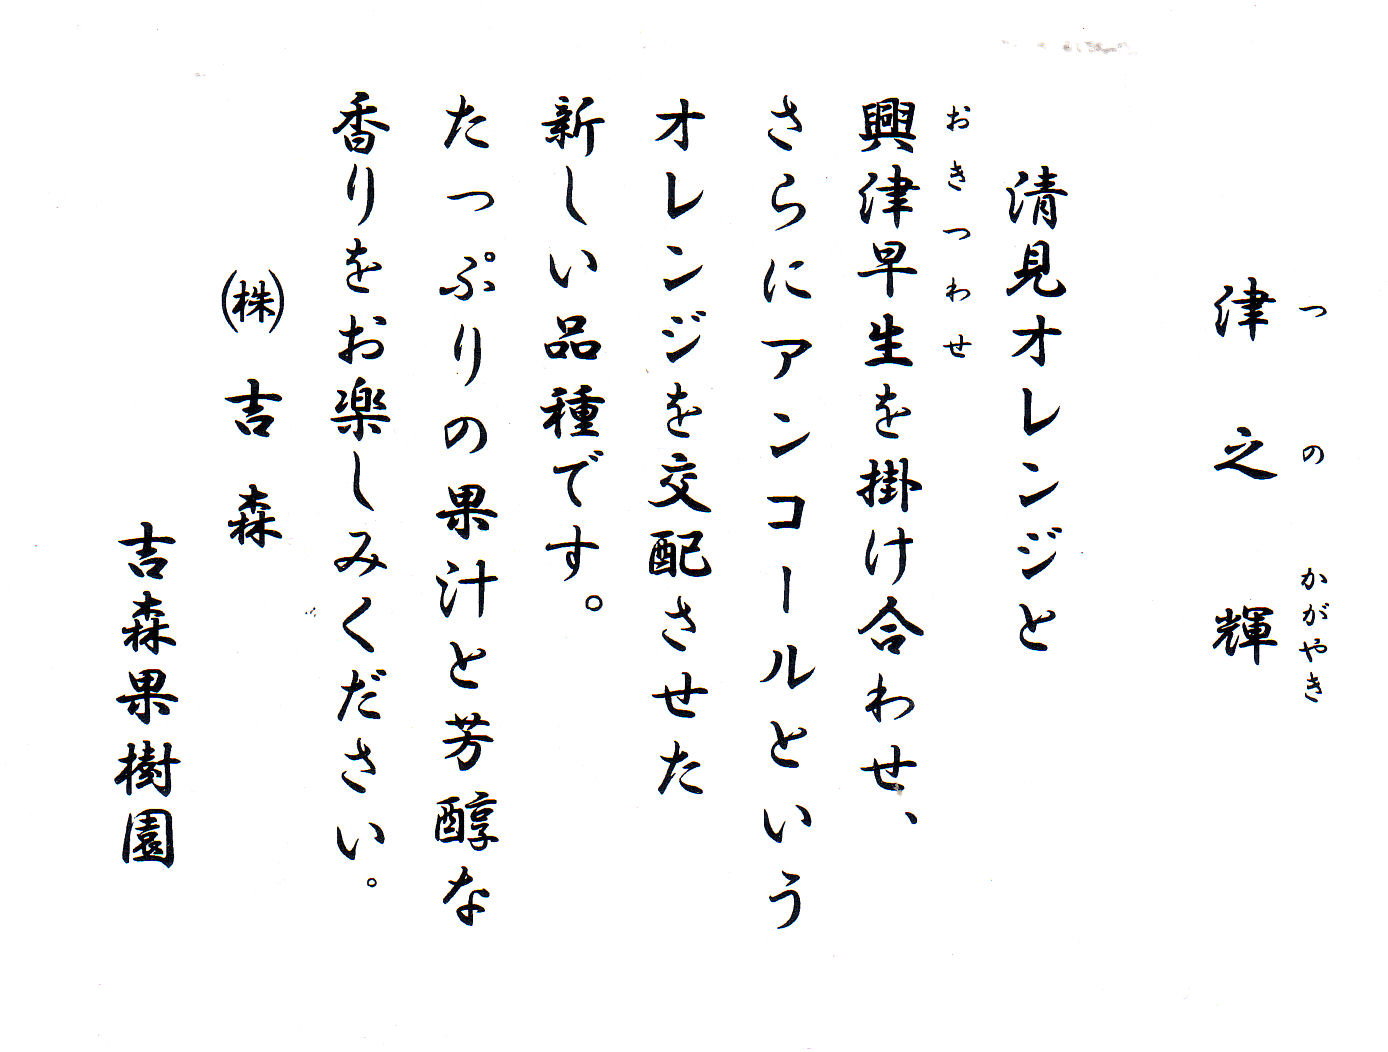 津之輝
つのかがやき
清見オレンジと
おきつわせ
興津早生を掛け合わせ、
さらにアンコールという
オレンジを交配させた
新しい品種です。
たっぷりの果汁と芳醇な
香りをお楽しみください。
㈱吉森
吉森果樹園